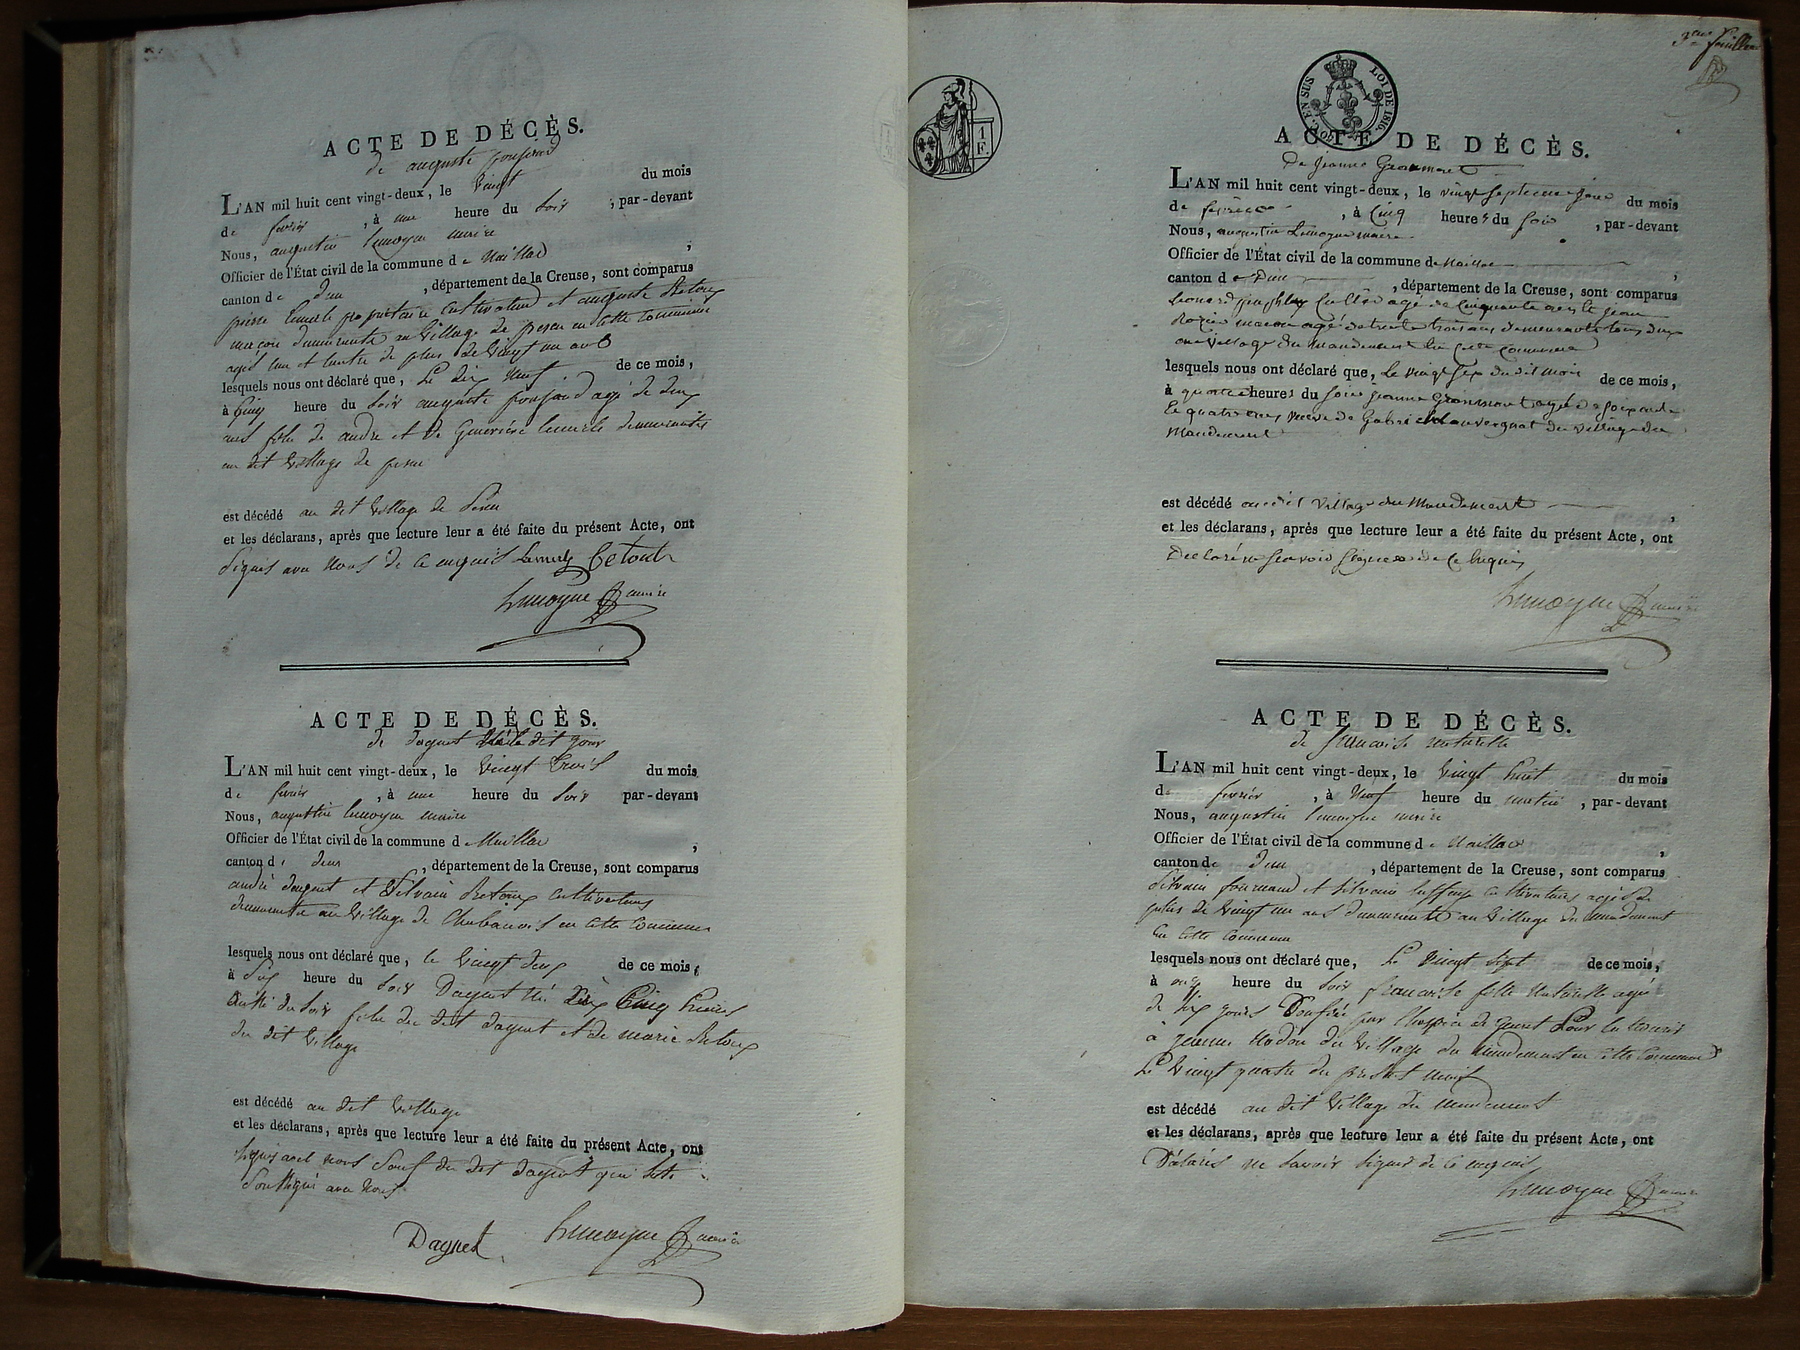 ACTE DE DÉCÈS.
de auguste poujaud
L'AN mil huit cent vingt-deux, le vingt du mois
de fevrier, à une heure du soir, par-devant
Nous, augustin lemoyne maire
Officier de l'État civil de la commune de Naillac,
canton de dun, département de la Creuse, sont comparus
pierre proprietaire cultivateur et auguste Betoux
macon demeurants au village de en cette commune
agés l'un et l'autre de plus de vingt un ans
lesquels nous ont déclaré que, le dix neuf de ce mois,
à cinq heure du soir auguste poujaud agé de deux
ans fils de andre et de Genevieve demeurants
au dit village de
est décédé au dit village de
et les déclarans, après que lecture leur a été faite du présent Acte, ont
signés avec nous de ce enquis Betoux
Lemoyne maire
ACTE DE DÉCÈS.
de daguet dit jour
L'AN mil huit cent vingt-deux, le vingt trois du mois
de fevrier, à une heure du soir par-devant
Nous, augustin lemoyne maire
Officier de l'État civil de la commune de Naillac,
canton de dun, département de la Creuse, sont comparus
andré daguet et Silvain Betoux cultivateurs
demeurants au village de Chabannes en cette commune
lesquels nous ont déclaré que, le vingt deux de ce mois,
à six heure du soir Daguet né cinq heures
du soir fils du dit daguet et de marie Betoux
du dit village
est décédé au dit village
et les déclarans, après que lecture leur a été faite du présent Acte, ont
signés avec nous sauf du dit daguet qui s'est
soussigné avec nous
Daguet Lemoyne maire
3eme feuillet
1 F.
LOI DE 1816.
EN SUS
ACTE DE DÉCÈS.
De Jeanne Grosmort
L'AN mil huit cent vingt-deux, le vingt septieme jour du mois
de fevrier, à cinq heures du soir, par-devant
Nous, augustin Lemoyne maire
Officier de l'État civil de la commune de Naillac,
canton de Dun, département de la Creuse, sont comparus
Leonard agé de cinquante ans et jean
macon agé de trente trois ans demeurants tous deux
au village du mandement en cette commune
lesquels nous ont déclaré que, le vingt six du dit mois de ce mois,
à quatre heures du soir jeanne Grosmort agée de soixante
quatre ans veuve de Gabriel auvergnat du village du
Mandement
est décédé audit village du Mandement,
et les déclarans, après que lecture leur a été faite du présent Acte, ont
Declaré ne scavoir signer de ce enquis
Lemoyne maire
ACTE DE DÉCÈS.
de francoise naturelle
L'AN mil huit cent vingt-deux, le vingt huit du mois
de fevrier, à neuf heure du matin, par-devant
Nous, augustin lemoyne maire
Officier de l'État civil de la commune de Naillac,
canton de dun, département de la Creuse, sont comparus
Silvain et silvain cultivateurs agés de
plus de vingt un ans demeurants au village du mandement
en cette commune
lesquels nous ont déclaré que, le vingt sept de ce mois,
à onze heure du soir francoise fille naturelle agée
de dix jours Confiée par l'hospice de Gueret pour la nourir
à jeanne Nadau du village du mandement en cette commune
le vingt quatre du present mois
est décédé au dit village du mandement
et les déclarans, après que lecture leur a été faite du présent Acte, ont
Déclarés ne savoir signer de ce enquis
Lemoyne maire